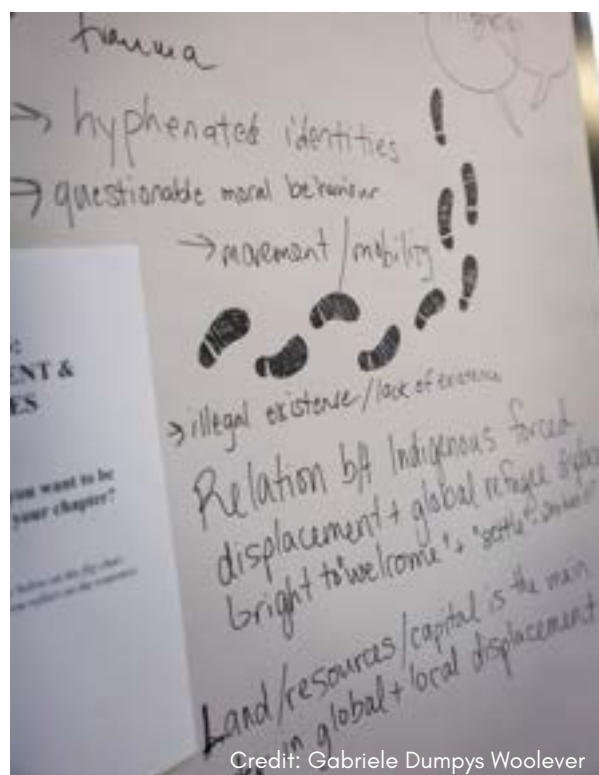 trauma
→ hyphenated identities
→ questionable moral behaviour
→ movement/mobility
ENT &
ES
want to be
your chapter?
→ illegal existence/lack of existence
Relation b/t Indigenous forced
displacement + global refugee
bright to "welcome" + "settle"
Land/resources/capital is the main
in global + local displacement
Credit: Gabriele Dumpys Woolever